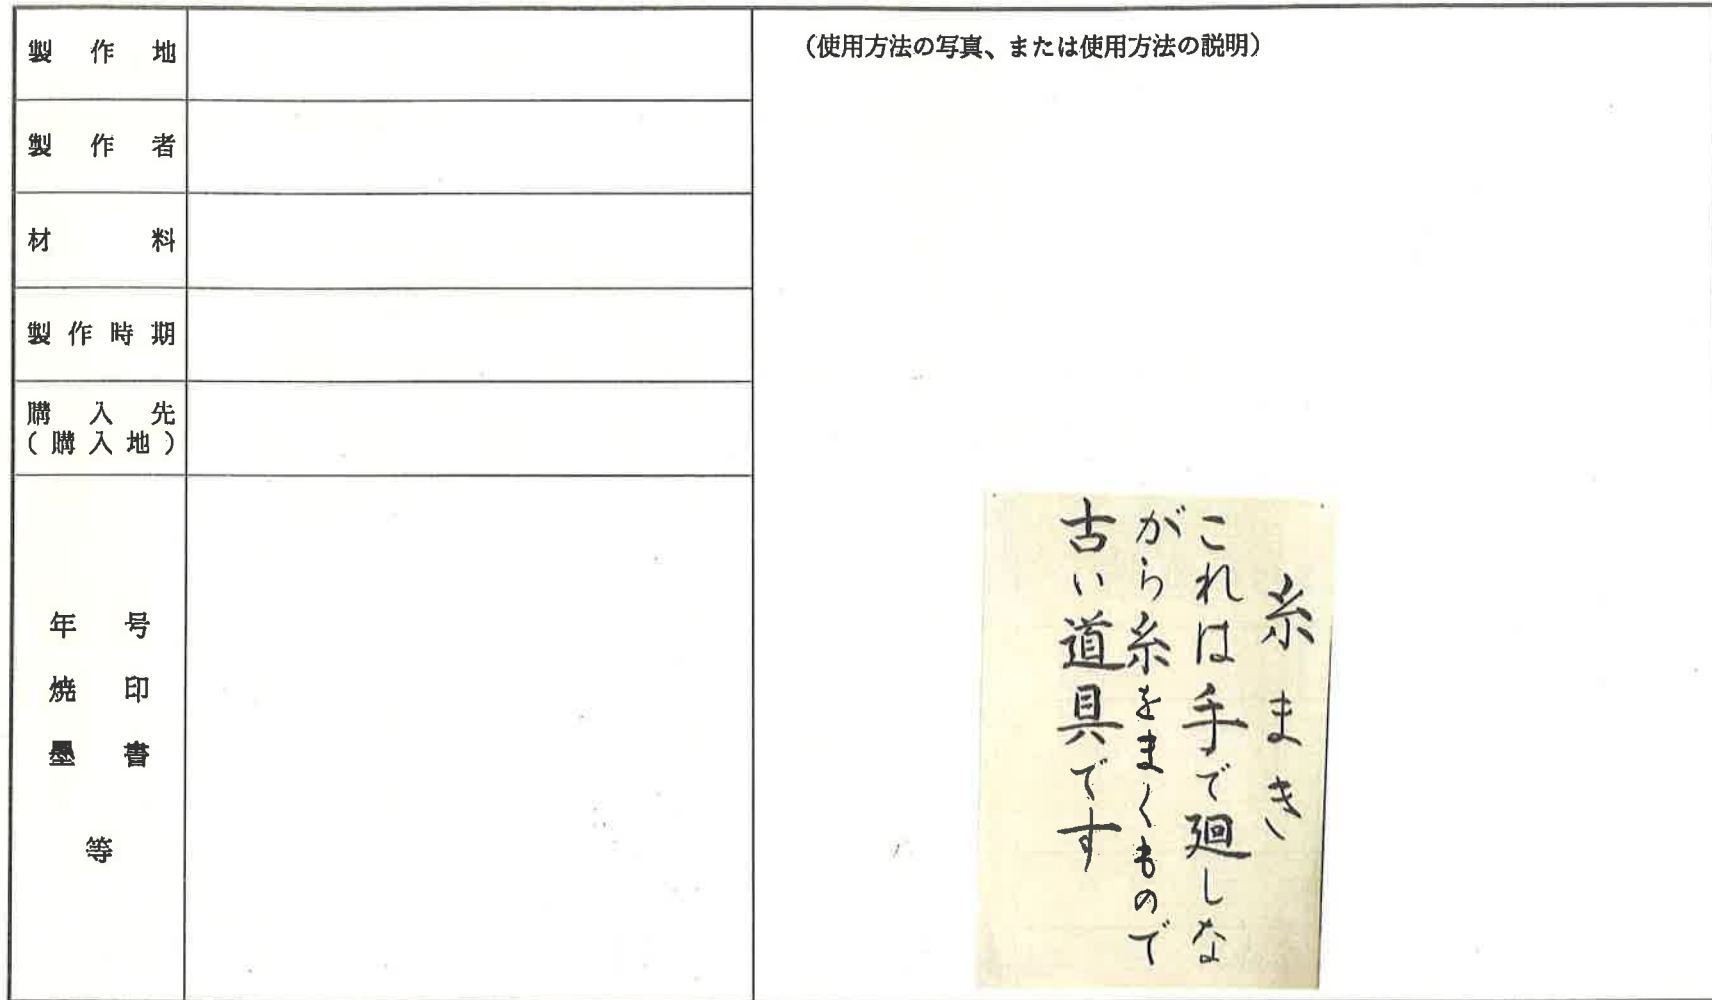 製作地
製作者
材料
製作時期
購入先
(購入地)
年号
焼印
墨書
等
(使用方法の写真、または使用方法の説明)
糸まき
これは手で廻しな
がら糸をまくもので
古い道具です